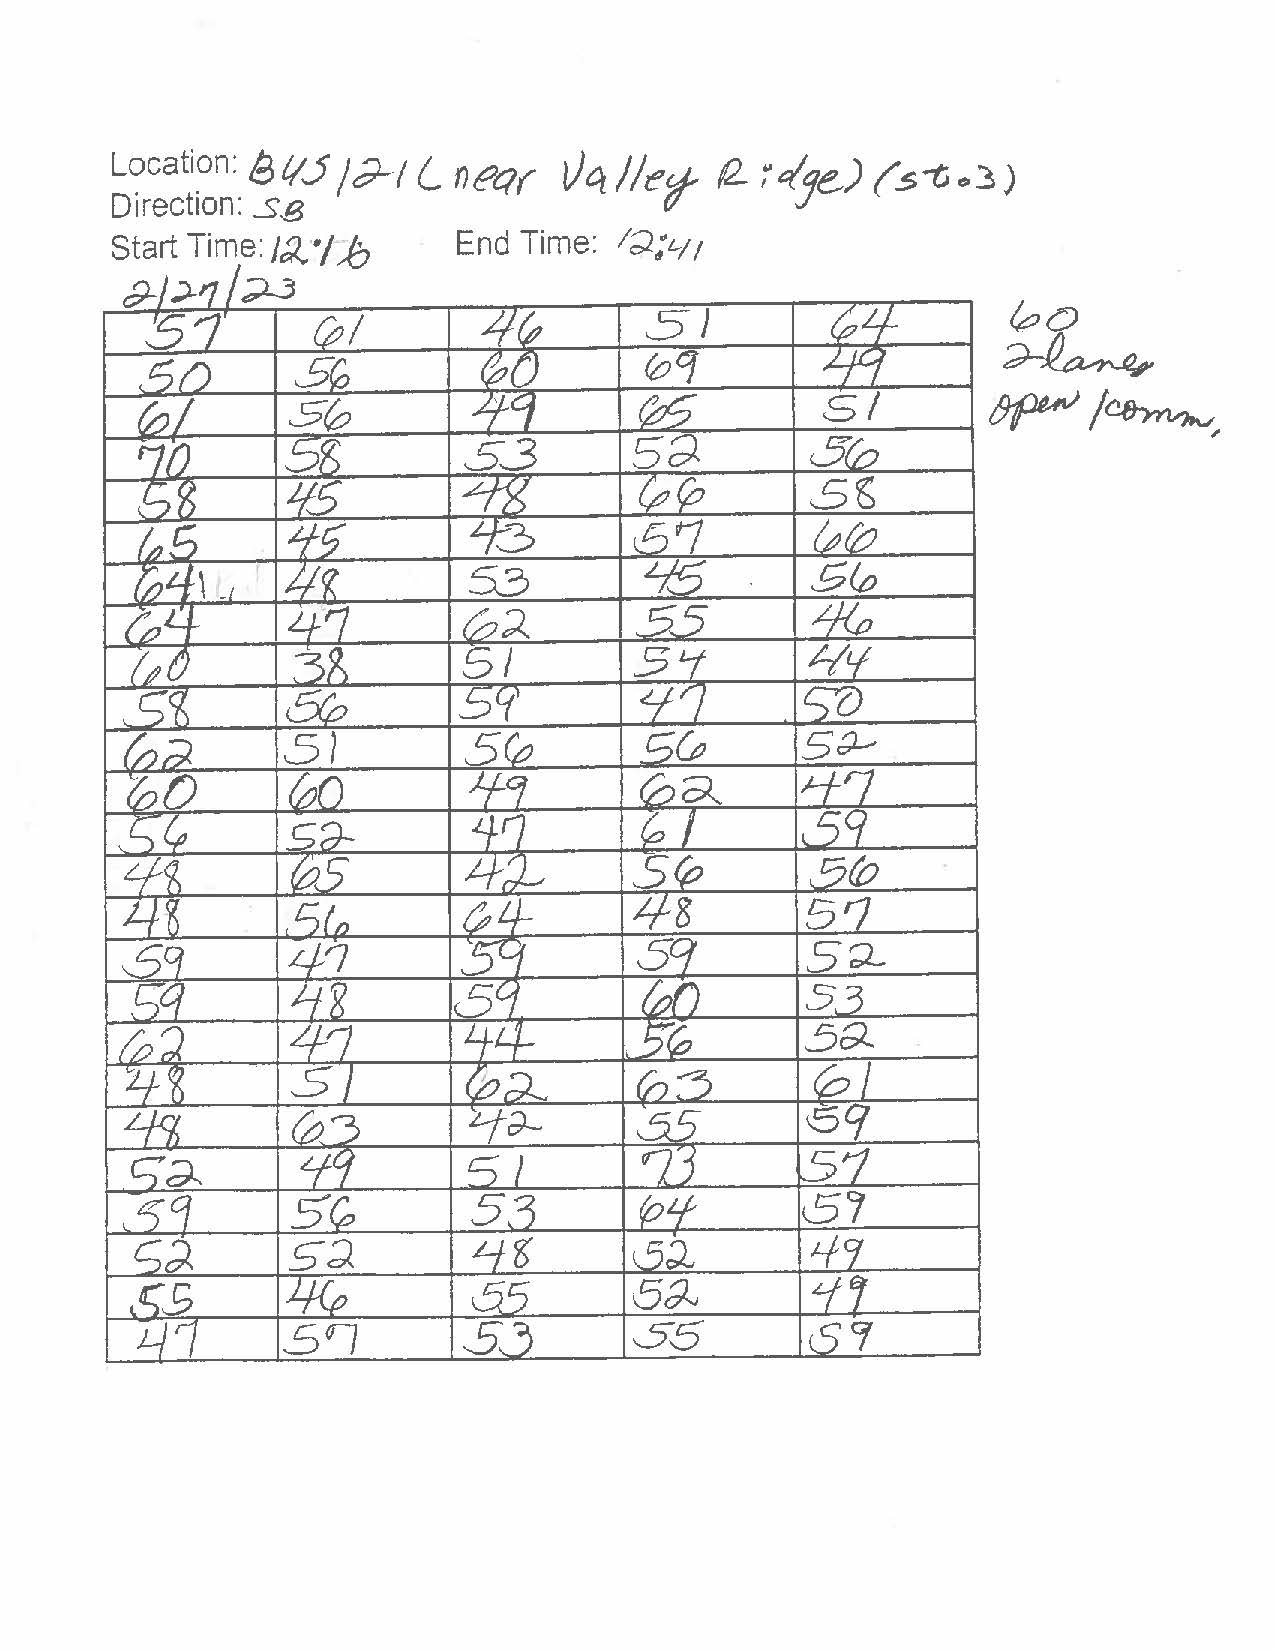 Location: BUS 121 (near Valley Ridge) (st.3)
Direction: SB
Start Time: 12:16 End Time: 12:41
2/27/23
57 61 46 51 64 60
50 56 60 69 49 2 lanes
61 56 49 65 51 open/comm.
70 58 53 52 56
58 45 48 66 58
65 45 43 57 66
64 48 53 45 56
64 47 62 55 46
60 38 51 54 44
58 56 59 47 50
62 51 56 56 52
60 60 49 62 47
56 52 47 61 59
48 65 42 56 56
48 56 64 48 57
59 47 59 59 52
59 48 59 60 53
62 47 44 56 52
48 51 62 63 61
48 63 42 55 59
52 49 51 73 57
59 56 53 64 59
52 52 48 52 49
55 46 55 52 49
47 57 53 55 59